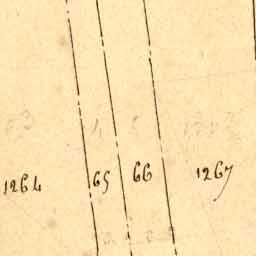 1264 65 66 1267